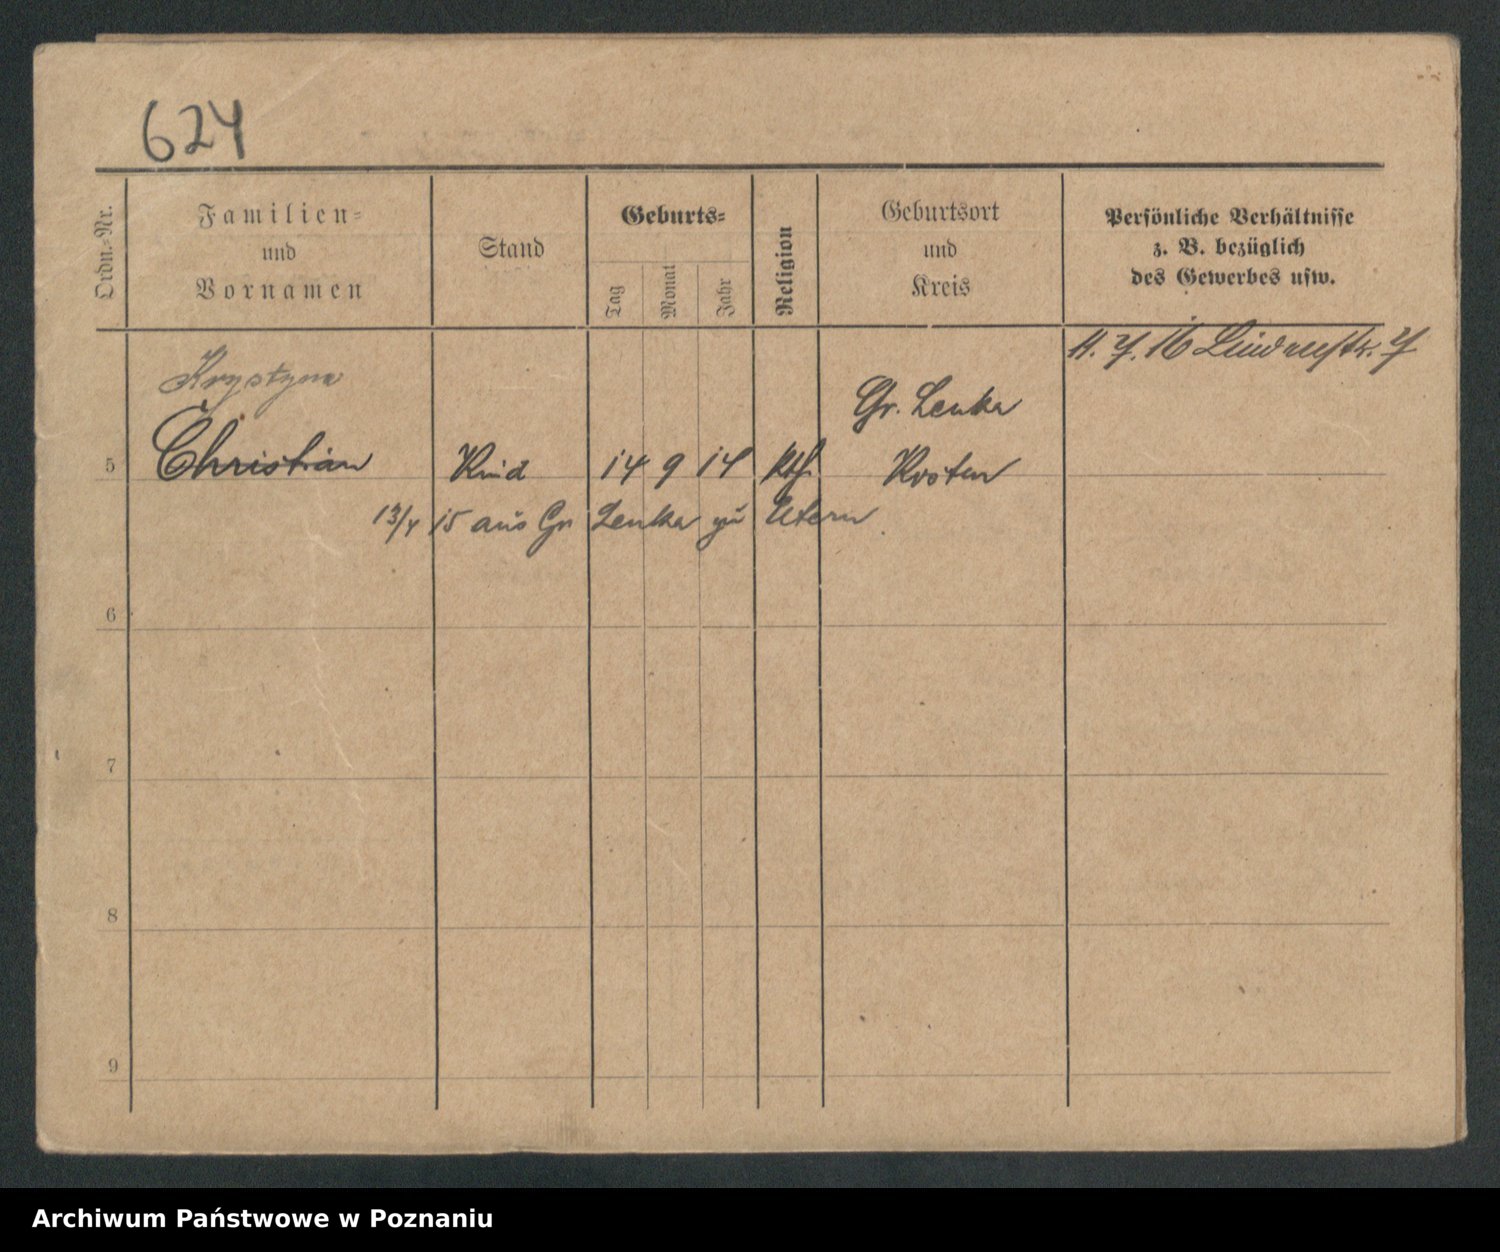 624
Ordn.-Nr.
Familien-
und
Vornamen
Stand
Geburts-
Tag
Monat
Jahr
Religion
Geburtsort
und
Kreis
Persönliche Verhältnisse
z. B. bezüglich
des Gewerbes usw.
16 Lindenstr.
Krystyna
Gr. Lenka
5 Christian Kind 14 9 14 Kth. Kosten
13/4 15 aus Gr Lenka zu Eltern
6
7
8
9
Archiwum Państwowe w Poznaniu